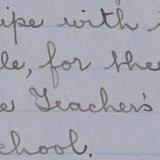 ipe with
le, for the
e Teacher's
chool.